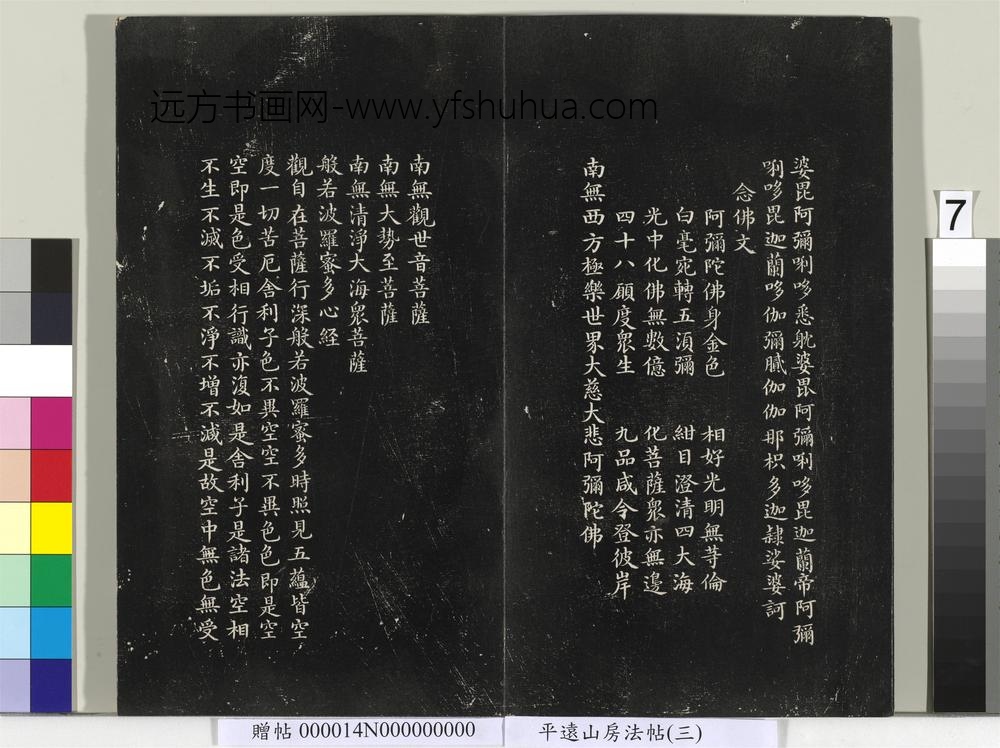 远方书画网-www.yfshuhua.com
婆毘阿彌唎哆悉躭婆毘阿彌唎哆毘迦蘭帝阿彌
唎哆毘迦蘭哆伽彌膩伽伽那枳多迦隸娑婆訶
念佛文
阿彌陀佛身金色 相好光明無等倫
白毫宛轉五須彌 紺目澄清四大海
光中化佛無數億 化菩薩衆亦無邊
四十八願度衆生 九品咸令登彼岸
南無西方極樂世界大慈大悲阿彌陀佛
南無觀世音菩薩
南無大勢至菩薩
南無清淨大海衆菩薩
般若波羅蜜多心經
觀自在菩薩行深般若波羅蜜多時照見五蘊皆空
度一切苦厄舍利子色不異空空不異色色即是空
空即是色受相行識亦復如是舍利子是諸法空相
不生不滅不垢不淨不增不減是故空中無色無受
7
贈帖 000014N000000000
平遠山房法帖(三)